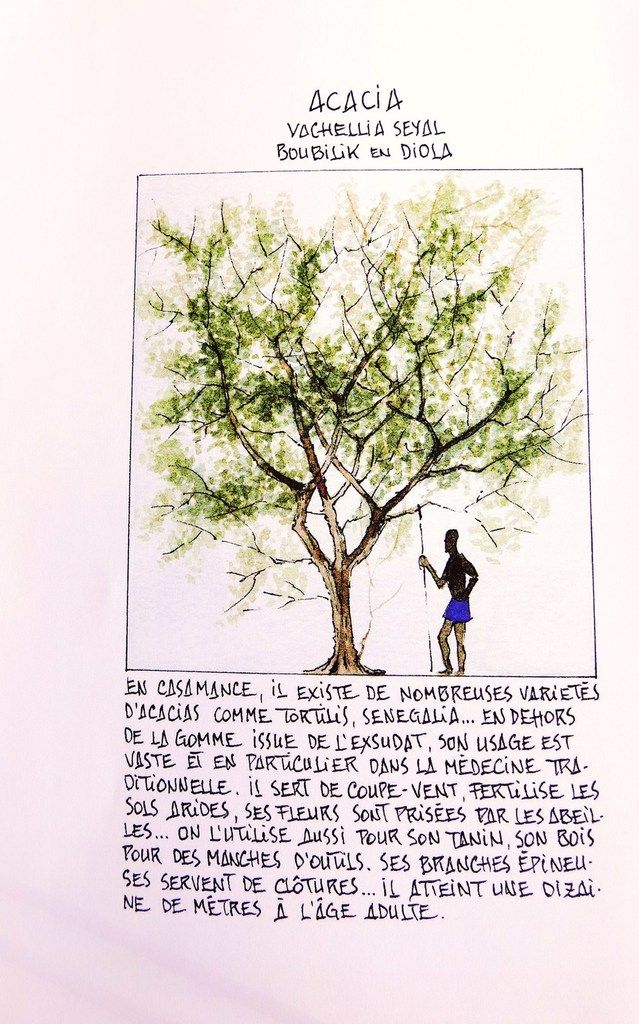 ACACIA
VACHELLIA SEYAL
BOUBILIK EN DIOLA
EN CASAMANCE, IL EXISTE DE NOMBREUSES VARIETÉS
D'ACACIAS COMME TORTILIS, SENEGALIA... EN DEHORS
DE LA GOMME ISSUE DE L'EXSUDAT, SON USAGE EST
VASTE ET EN PARTICULIER DANS LA MÉDECINE TRA-
DITIONNELLE. IL SERT DE COUPE-VENT, FERTILISE LES
SOLS ARIDES, SES FLEURS SONT PRISÉES PAR LES ABEIL-
LES... ON L'UTILISE AUSSI POUR SON TANIN, SON BOIS
POUR DES MANCHES D'OUTILS. SES BRANCHES ÉPINEU-
SES SERVENT DE CLÔTURES... IL ATTEINT UNE DIZAI-
NE DE MÈTRES À L'ÂGE ADULTE.